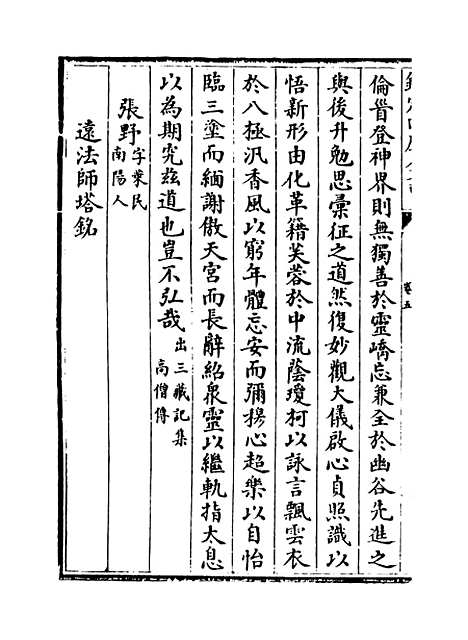 倫首登神界則無獨善於靈嶠忘兼全於幽谷先進之
與後升勉思彙征之道然復妙觀大儀啟心貞照識以
悟新形由化革籍芙蓉於中流蔭瓊柯以詠言飄雲衣
於八極汎香風以窮年體忘安而彌揚心超樂以自怡
臨三塗而緬謝傲天宮而長辭紹衆靈以繼軌指太息
以為期究兹道也豈不弘哉出三藏記集
高僧傳
張野字萊民
南陽人
遠法師塔銘